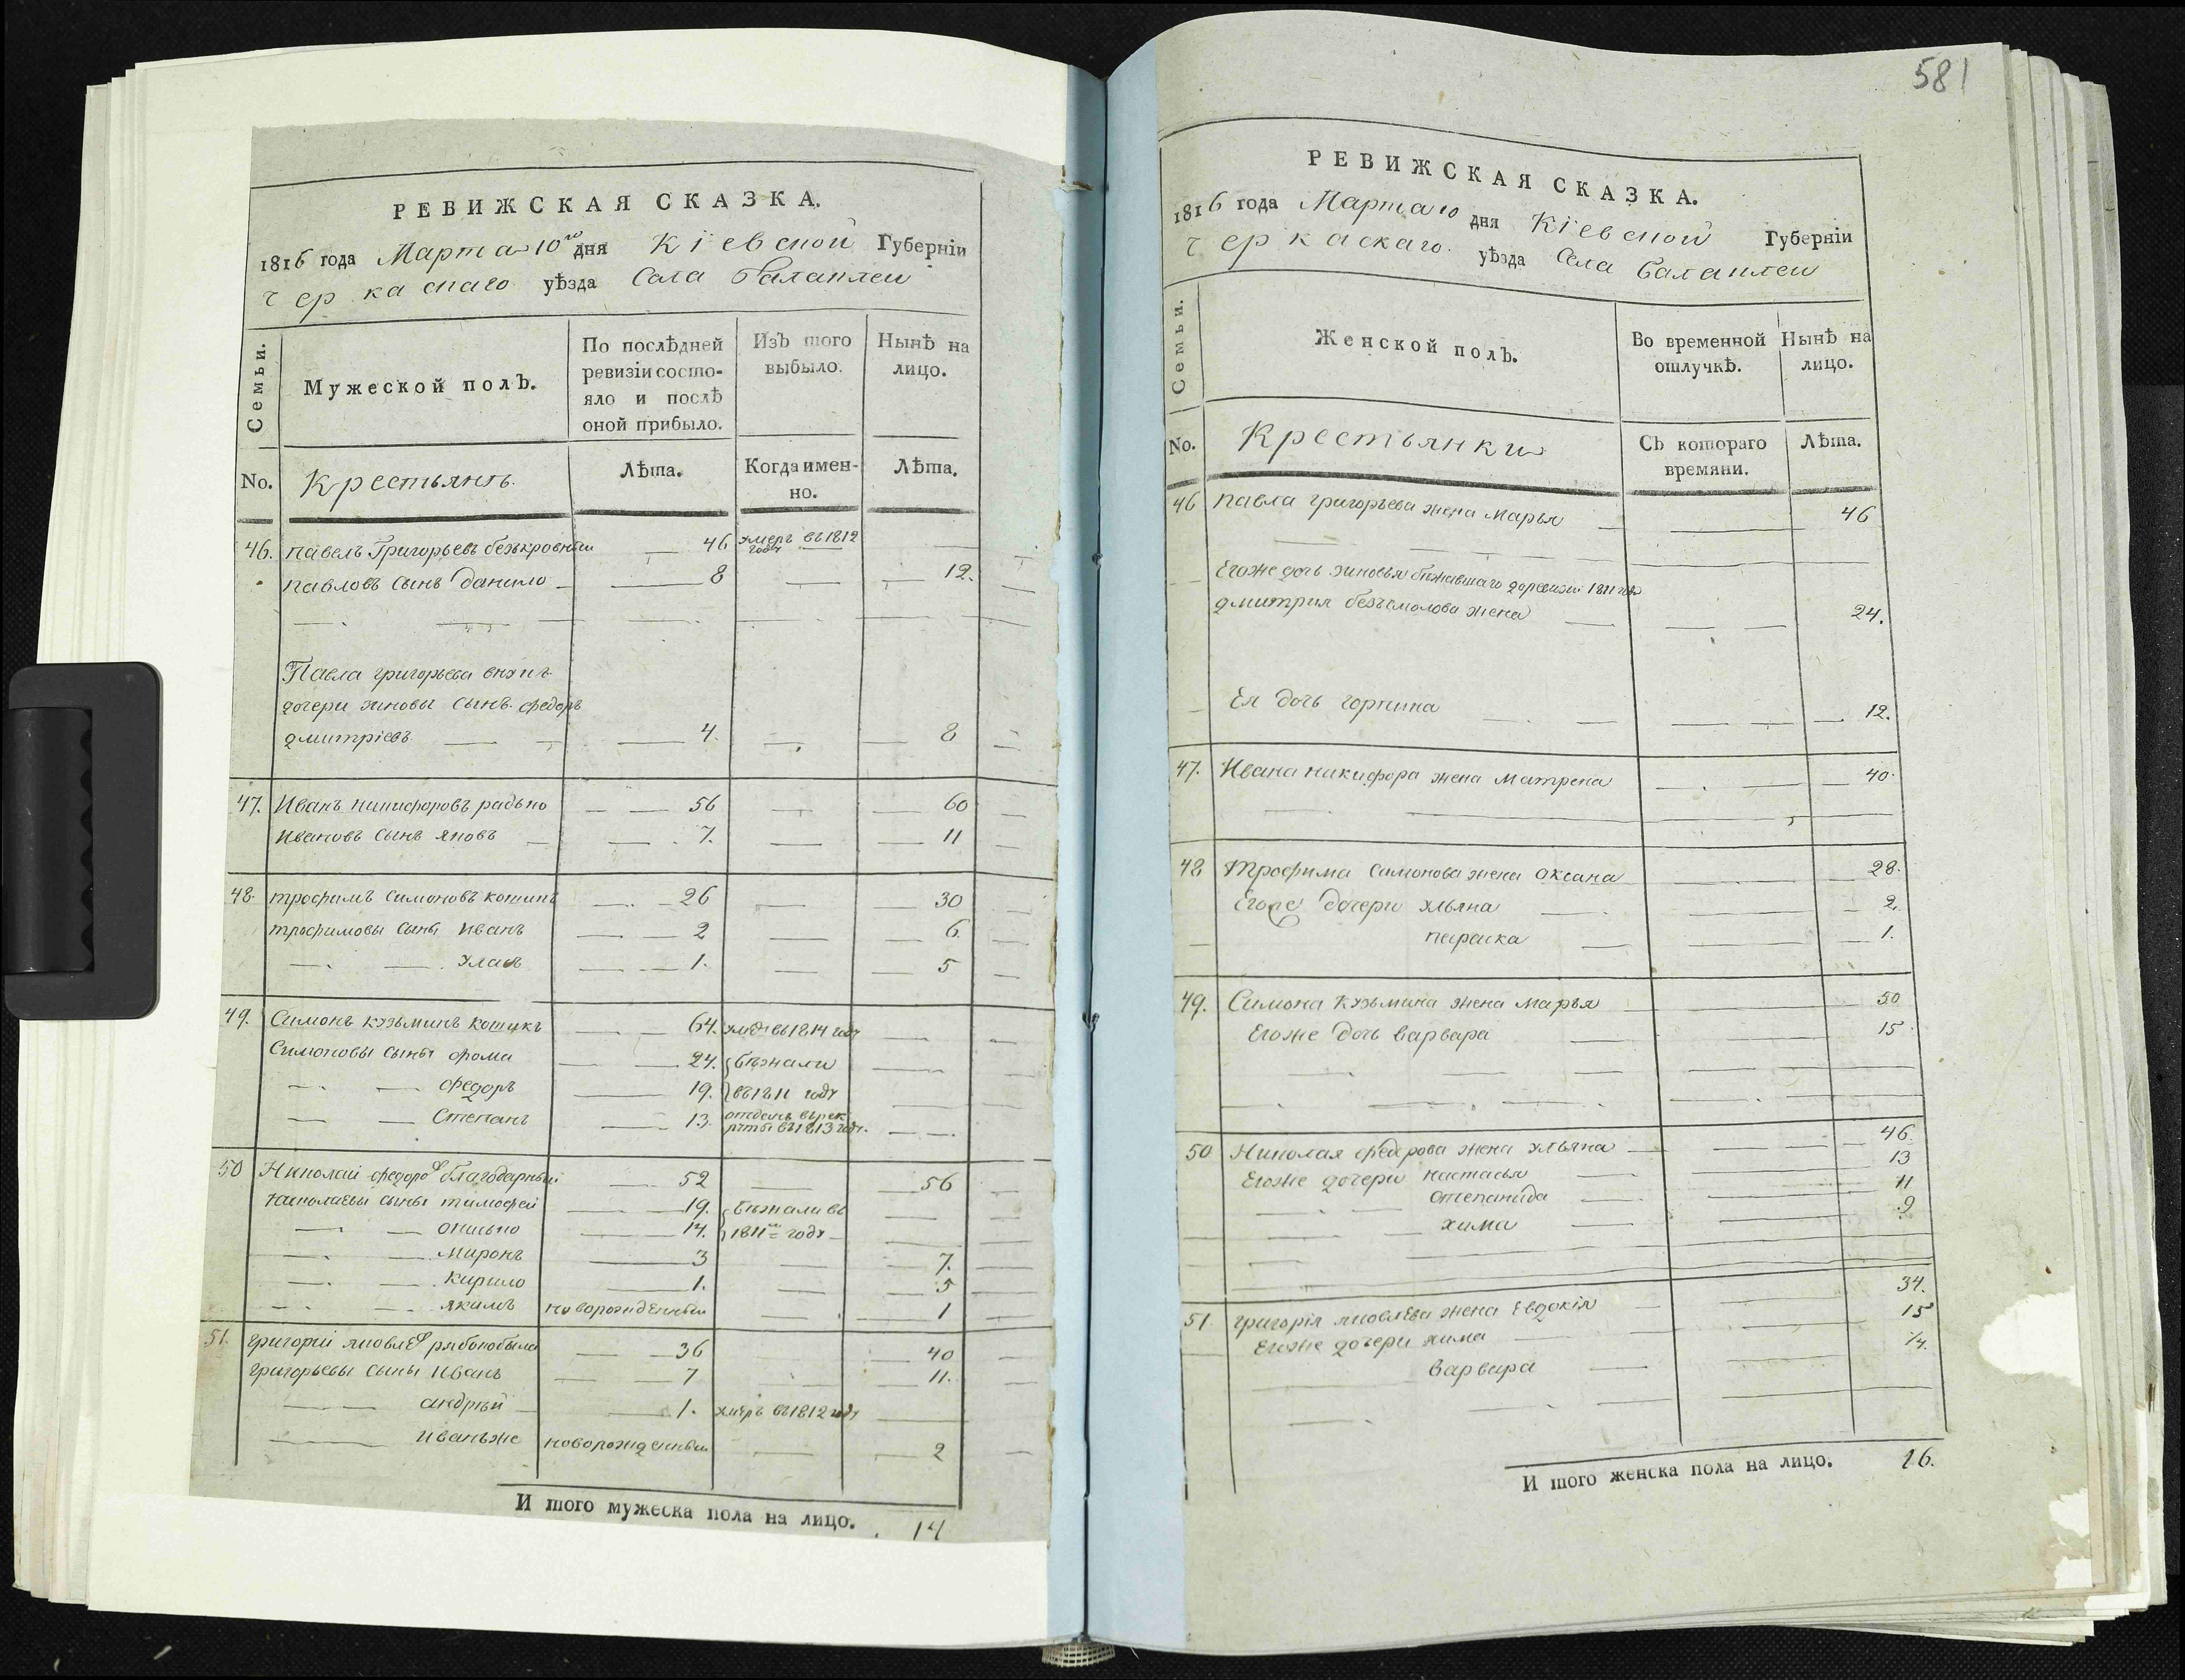 РЕВИЖСКАЯ СКАЗКА.
1816 года Марта 10го дня Кіевской Губерніи
черкаскаго уѣзда Села Балаклеи
Семьи.
Мужеской полъ.
По послѣдней
ревизіи состо-
яло и послѣ
оной прибыло.
Изъ того
выбыло.
Нынѣ на
лицо.
No.
Крестьянъ.
Лѣта.
Когда имен-
но.
Лѣта.
46. павелъ Григорьевъ безкровный 46 умеръ въ 1812 году
павловъ сынъ данило 8 12.
Павла григорьева внукъ
дочери зиновьи сынъ федоръ
дмитріевъ 4. 8
47. Иванъ никифоровъ радько 56 60
Ивановъ сынъ яковъ 7. 11
48. трофимъ симоновъ 26 30
трофимовы сыны Иванъ 2 6
1. 5
49. Симонъ кузьминъ 64. въ 1814 году
Симоновы сыны фома 24. бѣжали
федоръ 19. въ 1811 году
Степанъ 13. отданъ въ рек
руты въ 1813 году.
50 Николай федоровъ благодарный 52 56
Николаевы сыны тимофей 19. бѣжали въ
онисько 14. 1811мъ году
Миронъ 3 7.
Кирило 1. 5
якимъ новорожденный 1
51. григорій яковлевъ 36 40
григорьевы сыны Иванъ 7 11.
андрѣй 1. умеръ въ 1812 году
иванъ же новорожденный 2
И того мужеска пола на лицо. 14
581
РЕВИЖСКАЯ СКАЗКА.
1816 года Марта 10 дня Кіевской Губерніи
черкаскаго уѣзда Села Балаклеи
Семьи.
Женской полъ.
Во временной
отлучкѣ.
Нынѣ на
лицо.
No.
Крестьянки
Съ котораго
времяни.
Лѣта.
46 павла григорьева жена Марья 46
Егоже дочь зиновья бѣжавшаго до ревизіи 1811 года
дмитрия жена 24.
Ея дочь горпина 12.
47. Ивана никифора жена матрена 40.
48 Трофима Симонова жена оксана 28.
Егоже дочери ульяна 2.
параска 1.
49. Симона кузьмина жена марья 50
Егоже дочь варвара 15
50 Николая федорова жена ульяна 46
Егоже дочери настасья 13
степанида 11
хима 9
51 григорія яковлева жена евдокія 34.
Егоже дочери хима 15
варвара 1/4.
И того женска пола на лицо. 16.